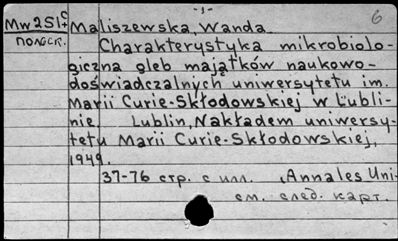 -1-
6
Mw251+c Maliszewska, Wanda
польск. Charakterystyka mikrobiolo-
giczna gleb majątków naukowo-
doświadczalnych uniwersytetu im.
Marii Curie-Skłodowskiej w Lubli-
nie Lublin, Nakładem uniwersy-
tetu Marii Curie-Skłodowskiej,
1949.
37-76 стр. с илл. , Annales Uni-
см. след. карт.